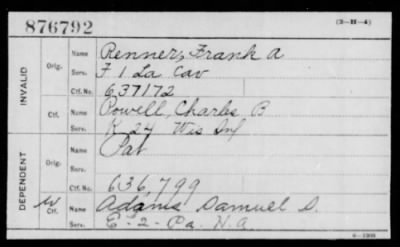 876792 (3-H-4)
INVALID
Orig. Name Renner, Frank A
Serv. F 1 La Cav
Ctf. No. 637172
Ctf. Name Powell, Charles B
Serv. K 24 Wis Inf
DEPENDENT
Orig. Name Pat
Serv.
Ctf. No. 636,799
W Ctf. Name Adams Samuel S.
Serv. E-2-Pa. H.A.
6-1308